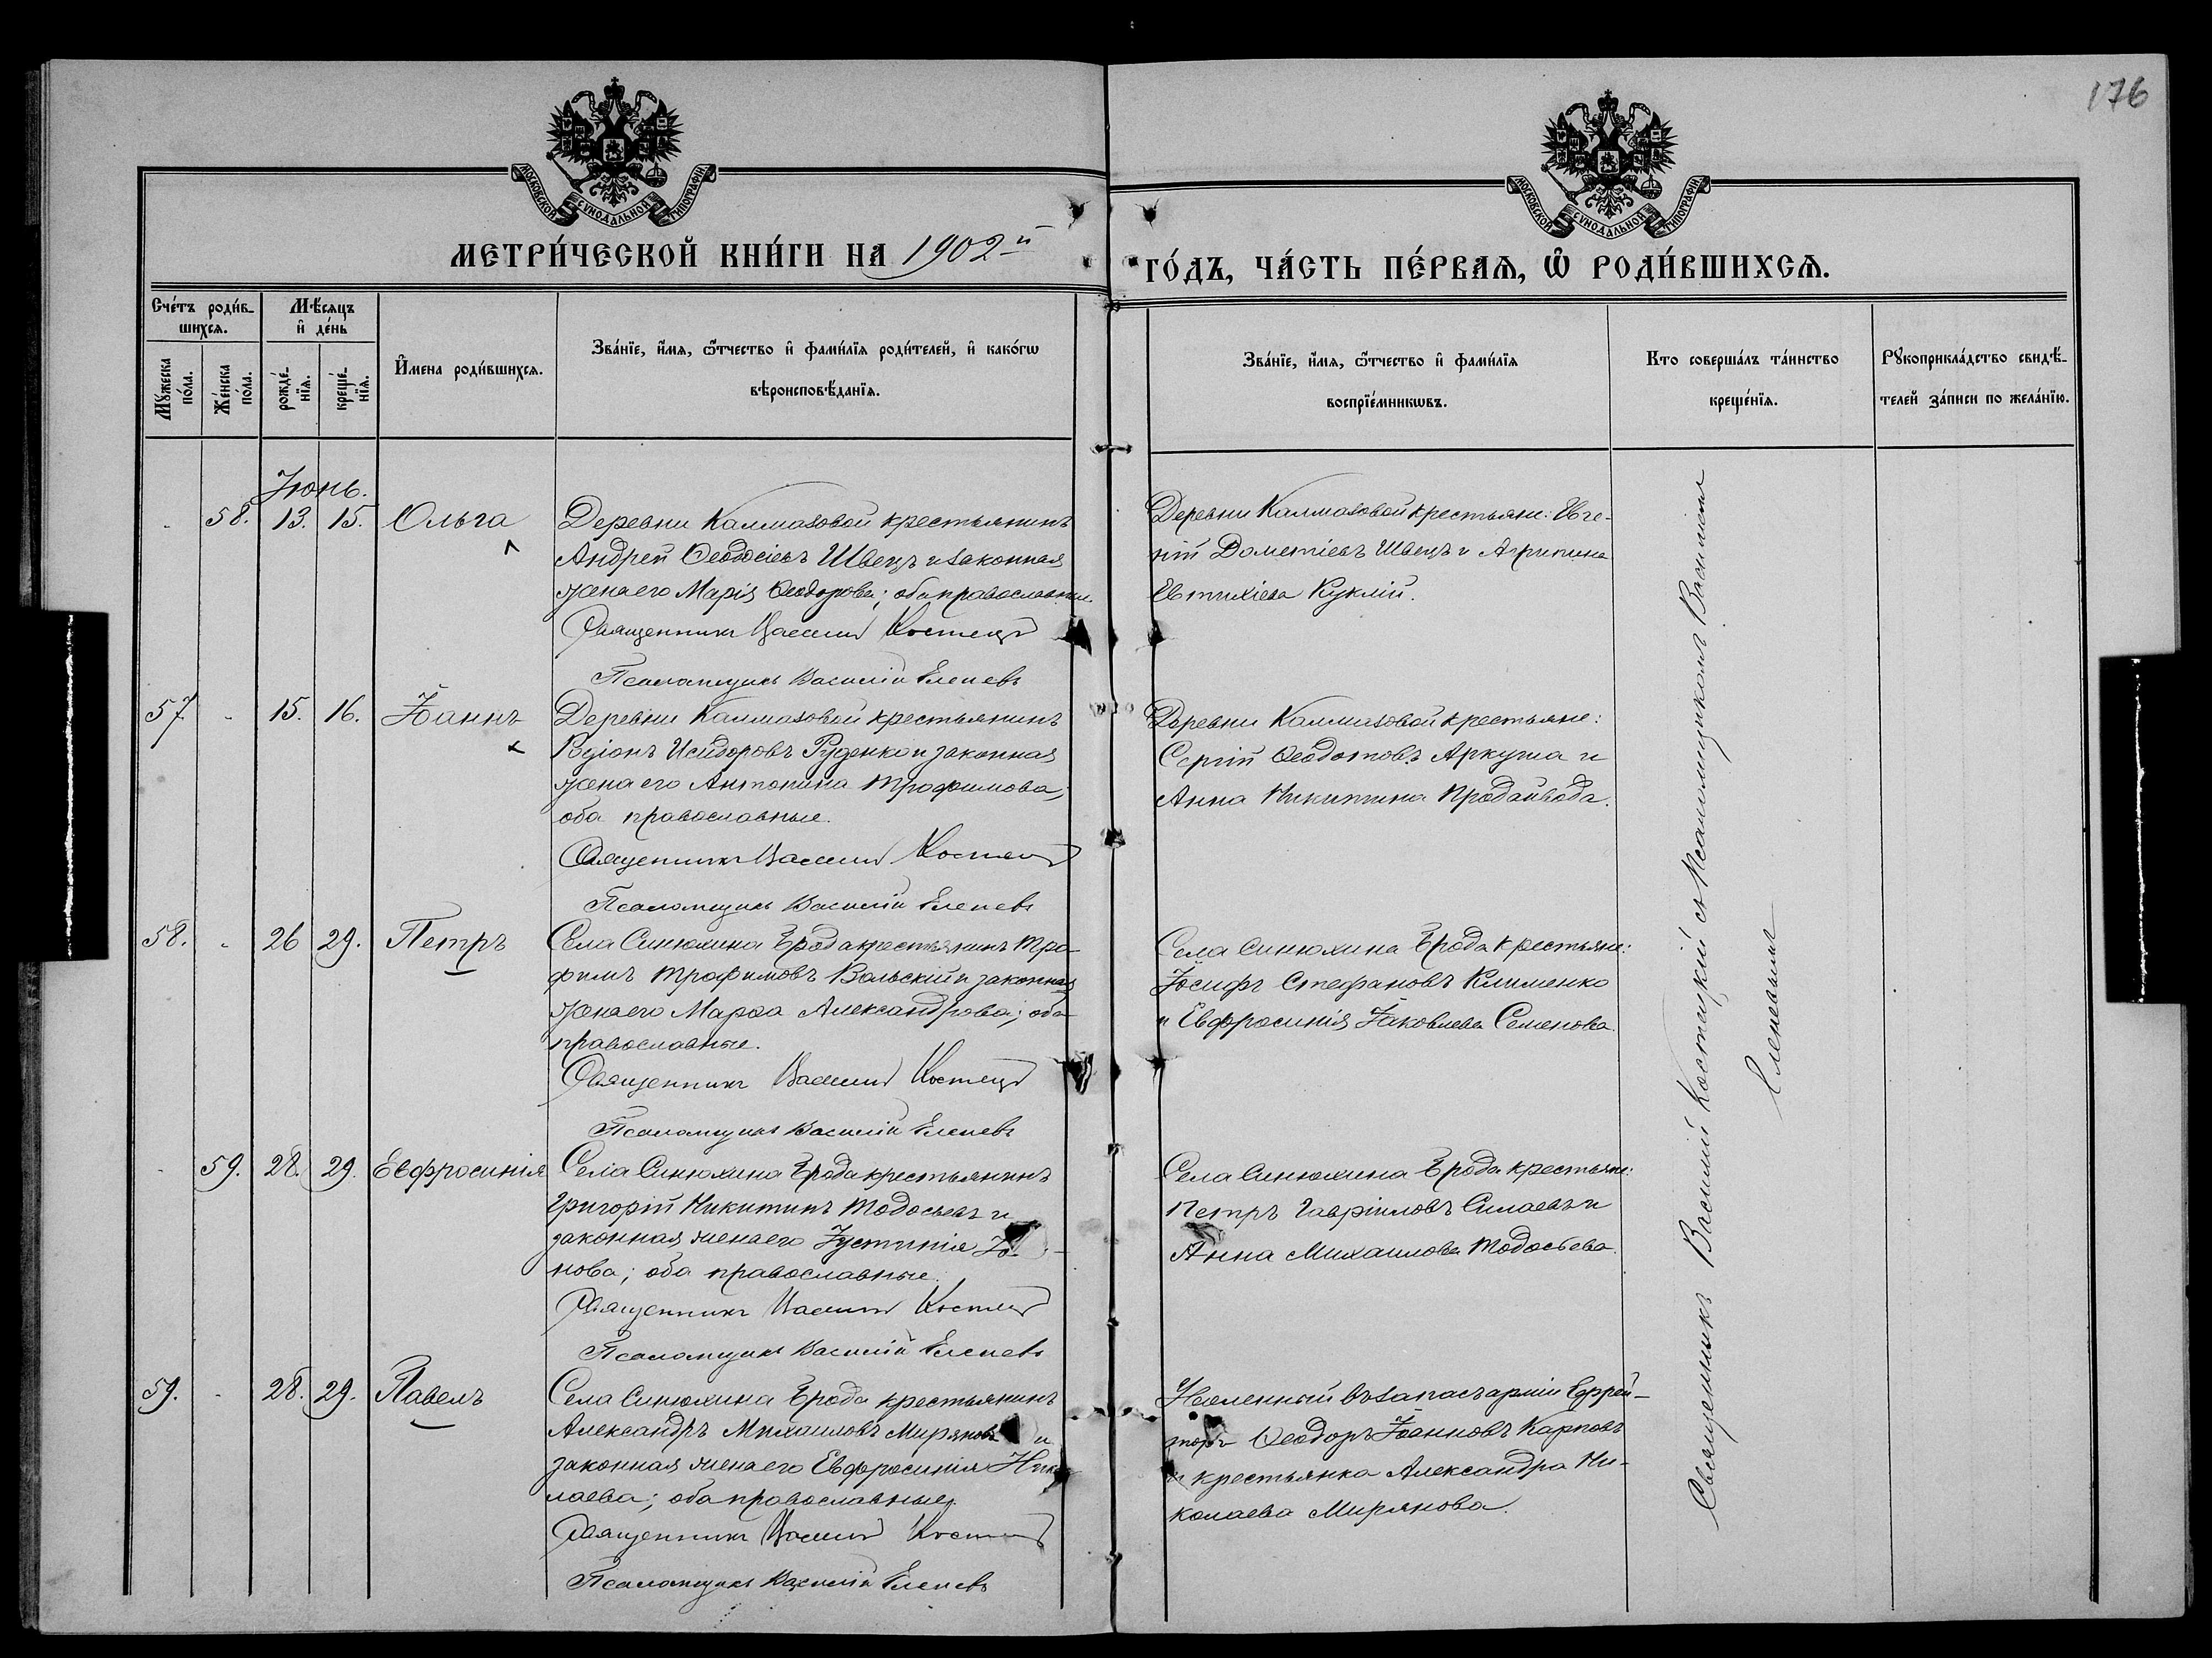 176
МОСКОВСКОЙ СѴНОДАЛЬНОЙ ТИПОГРАФІИ.
МОСКОВСКОЙ СѴНОДАЛЬНОЙ ТИПОГРАФІИ.
МЕТРИ́ЧЕСКОЙ КНИ́ГИ НА 1902й
ГО́ДЪ, ЧА́СТЬ ПЕ́РВАѦ, Ѡ҆ РОДИ́ВШИХСѦ.
Сче́тъ роди́в-
шихсѧ.
Мѣ́сѧцъ
и҆ де́нь
Мꙋ́жеска
по́ла.
Же́нска
по́ла.
рожде́-
нїѧ.
креще́-
нїѧ.
И҆́мена роди́вшихсѧ.
Зва́нїе, и҆́мѧ, ѻ҆́тчество и҆ фами́лїѧ роди́телей, и҆ како́гѡ
вѣроисповѣ́данїѧ.
Зва́нїе, и҆́мѧ, ѻ҆́тчество и҆ фами́лїѧ
воспрїе́мникѡвъ.
Кто соверша́лъ та́инство
креще́нїѧ.
Рꙋкоприкла́дство свидѣ́-
телей за́писи по жела́нїю.
Іюнь.
58. 13. 15. Ольга
Деревни Калмазовой крестьянинъ
Андрей Ѳеодосіевъ Швецъ и законная
жена его Марія Ѳеодорова; оба православные.
Священникъ Василій Костецкій
Псаломщикъ Василій Еленевъ
Деревни Калмазовой крестьяне: Евге-
ній Дометіевъ Швецъ и Агрипина
Евтихіева Куклій.
57. 15. 16. Іоаннъ
Деревни Калмазовой крестьянинъ
Исидоровъ Руденко и законная
жена его Антонина Трофимова;
оба православные.
Священникъ Василій Костецкій
Псаломщикъ Василій Еленевъ
Деревни Калмазовой крестьяне:
Сергій Ѳеодотовъ Аркуша и
Анна Никитина Продайвода.
58. 26 29. Петръ
Села Синюхина Брода крестьянинъ Тро-
фимъ Трофимовъ Вольскій и законная
жена его Марѳа Александрова; оба
православные.
Священникъ Василій Костецкій
Псаломщикъ Василій Еленевъ
Села Синюхина Брода крестьяне:
Іосифъ Стефановъ Клименко
и Евфросинія Іаковлева Семенова.
59. 28. 29. Евфросинія
Села Синюхина Брода крестьянинъ
Григорій Никитинъ Тодосьевъ и
законная жена его Іустинія
нова; оба православные.
Священникъ Василій Костецкій
Псаломщикъ Василій Еленевъ
Села Синюхина Брода крестьяне:
Петръ Гавріиловъ Силаевъ и
Анна Михаилова Тодосьева.
59. 28. 29. Павелъ
Села Синюхина Брода крестьянинъ
Александръ Михаиловъ Миряновъ и
законная жена его Евфросинія Нико
лаева; оба православные.
Священникъ Василій Костецкій
Псаломщикъ Василій Еленевъ
въ запасъ арміи Ефрей-
торъ Ѳеодоръ Іоанновъ Карповъ
и крестьянка Александра Ни-
колаева Мирянова.
Священникъ Василій Костецкій съ Псаломщикомъ Василіемъ
Еленевымъ